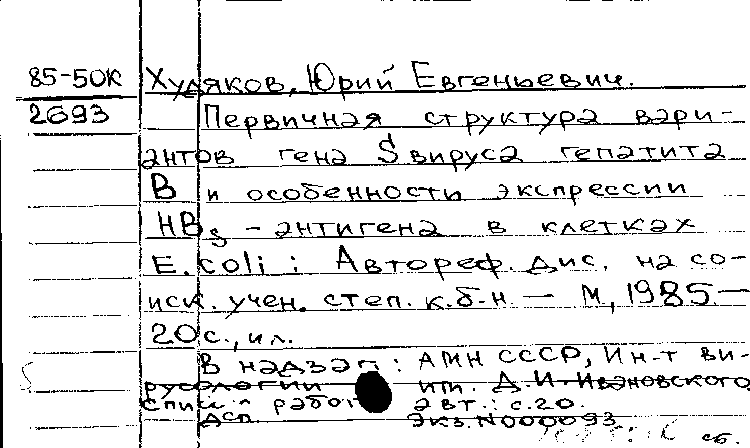 85-50К Худяков, Юрий Евгеньевич.
2693 Первичная структура вари-
антов гена S вируса гепатита
В и особенности экспрессии
HBs - антигена в клетках
E. coli : Автореф. дис. на со-
иск. учен. степ. к.б.н. — М, 1985 —
20 с., ил.
В надзаг: АМН СССР, Ин-т ви-
русологии им. Д.И. Ивановского
Список работ авт.: с. 20.
ДСП. Экз. N000093
сб.